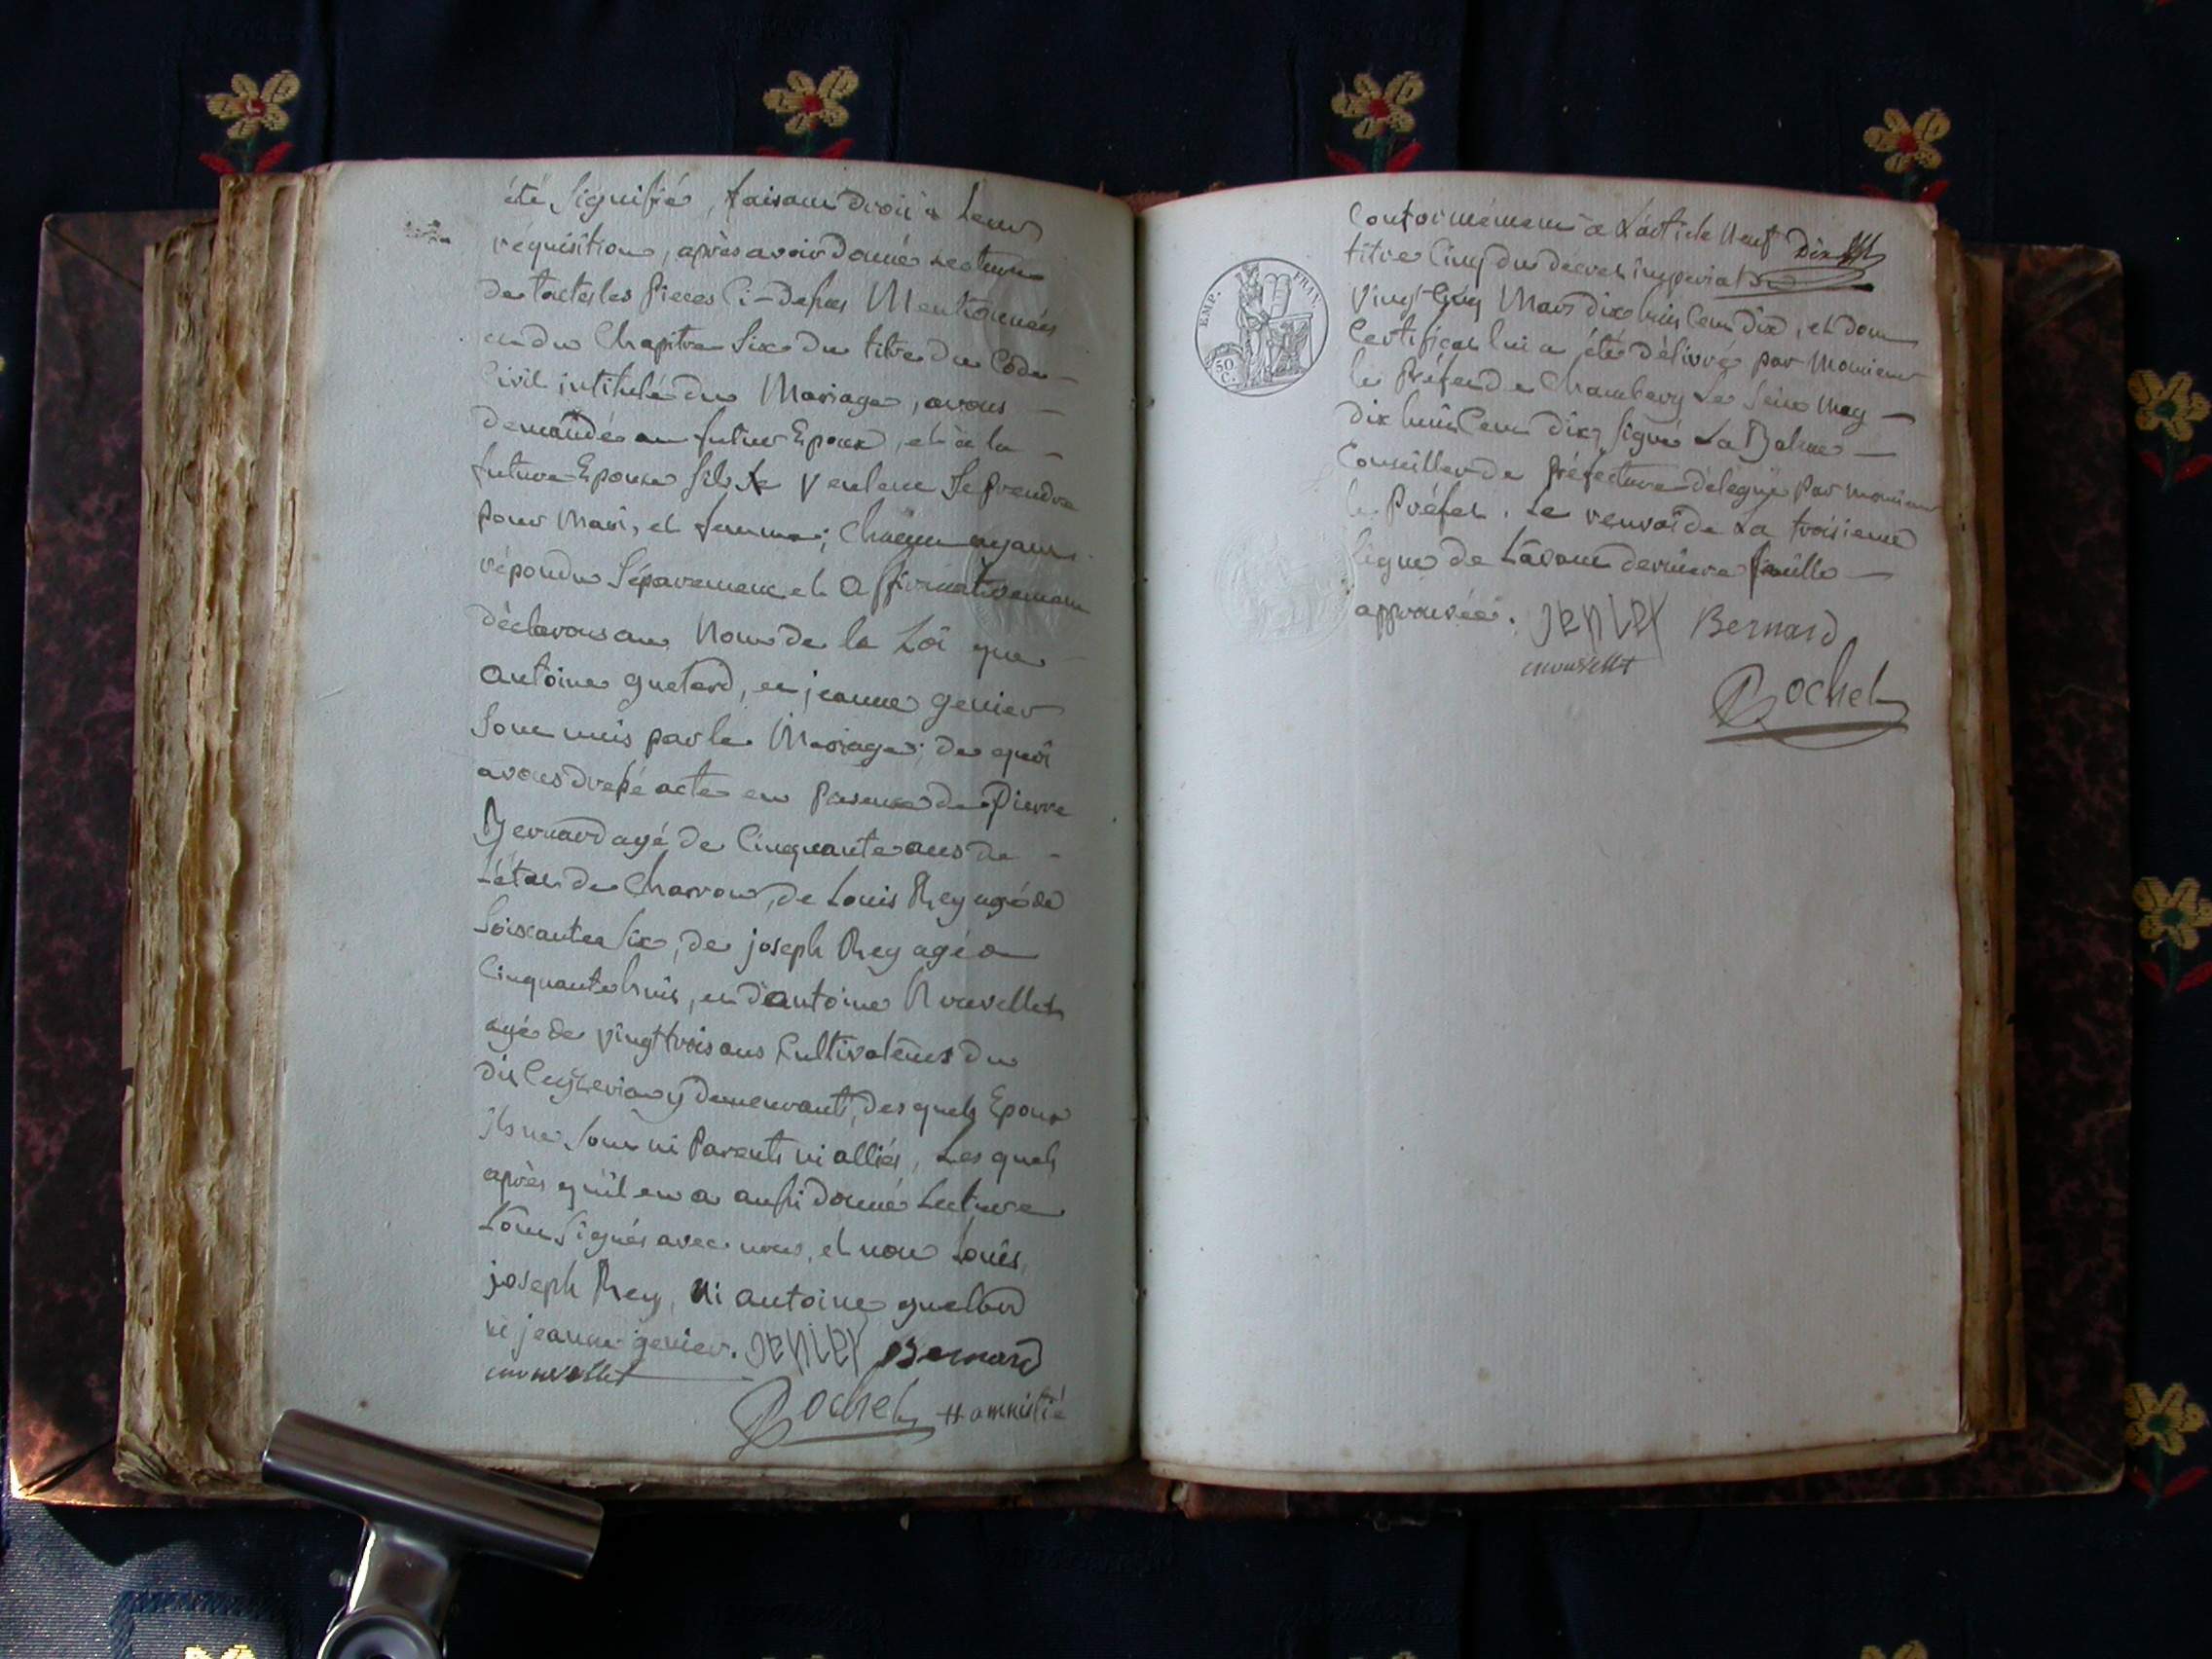 été Signifié, faisant droit à Leur
réquisition, après avoir donné Lecture
de toutes les Pieces Ci-dessus Mentionnées
et du Chapitre Six du titre du Code
Civil intitulé du Mariage, avons
demandé au futur Epoux, et à la
future Epouse S'ils Veulent Se prendre
pour Mari, et femme; Chacun ayant
répondu Séparement et affirmativement
déclarons au Nom de la Loi que
antoine guetard, et jeanne genier
Sont unis par le Mariage; de quoi
avons dressé acte en Présence de Pierre
Bernard agé de Cinquante ans de
L'état de Charron, de Louis Rey agé de
Soixante Six, de joseph Rey agé de
Cinquante huit, et d'antoine
agé de Vingt trois ans Cultivateurs du
dit y demeurant, des quels Epoux
ils ne Sont ni Parents ni alliés, Les quels
après qu'il en a aussi donné Lecture
L'ont Signés avec nous, et non Louis,
joseph Rey, Ni antoine guetard
ni jeanne genier. JENIEX Bernard
Rochet # amnistié
EMP. FRAN.
50 C.
Conformément à L'article Neuf Dix
titre Cinq du decret impérial du
Vingt Cinq Mars dix huit Cent Dix, et dont
Certificat lui a été délivré par Monsieur
le Préfet de Chambery Le Seize May
dix huit Cent dix, Signé La Balme
Conseiller de préfecture délégué par Monsieur
le Préfet. Le renvoi de La troisieme
Ligne de L'avant derniere feuille
approuvée. JENIEX Bernard
Rochet